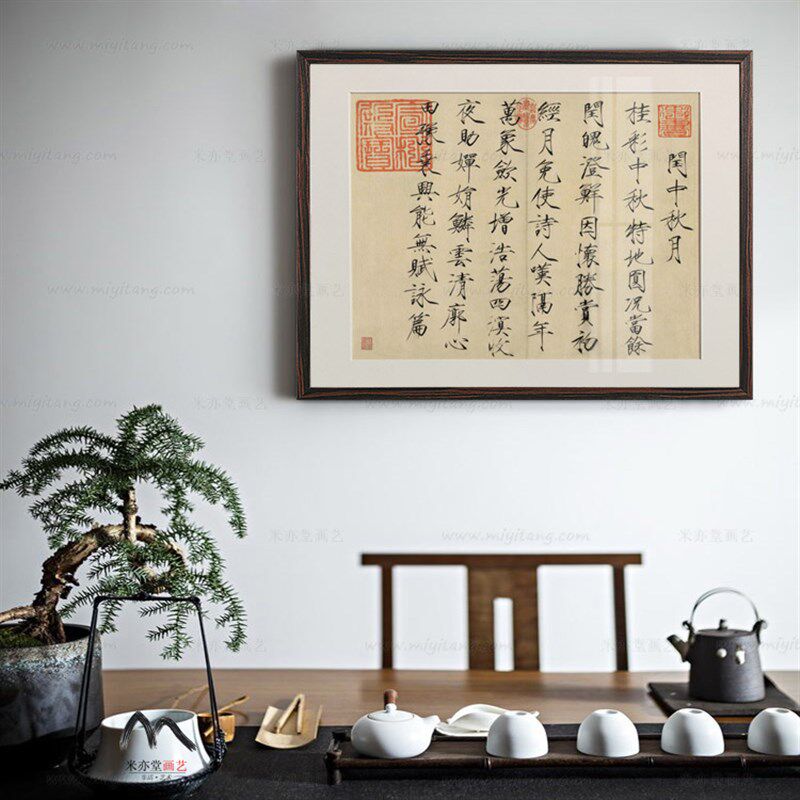 閏中秋月
桂彩中秋特地圓况當餘
閏魄澄鮮因懷勝賞初
經月免使詩人嘆隔年
萬象斂光增浩蕩四溟收
夜助嬋娟鱗雲清廓心
田豫乘興能無賦詠篇
米亦堂画艺
www.miyitang.com